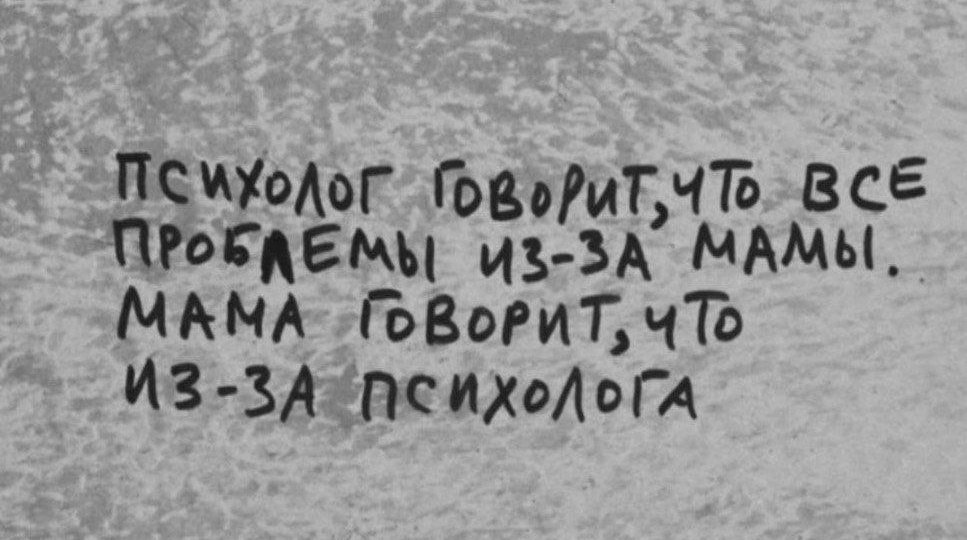 ПСИХОЛОГ ГОВОРИТ, ЧТО ВСЕ
ПРОБЛЕМЫ ИЗ-ЗА МАМЫ.
МАМА ГОВОРИТ, ЧТО
ИЗ-ЗА ПСИХОЛОГА